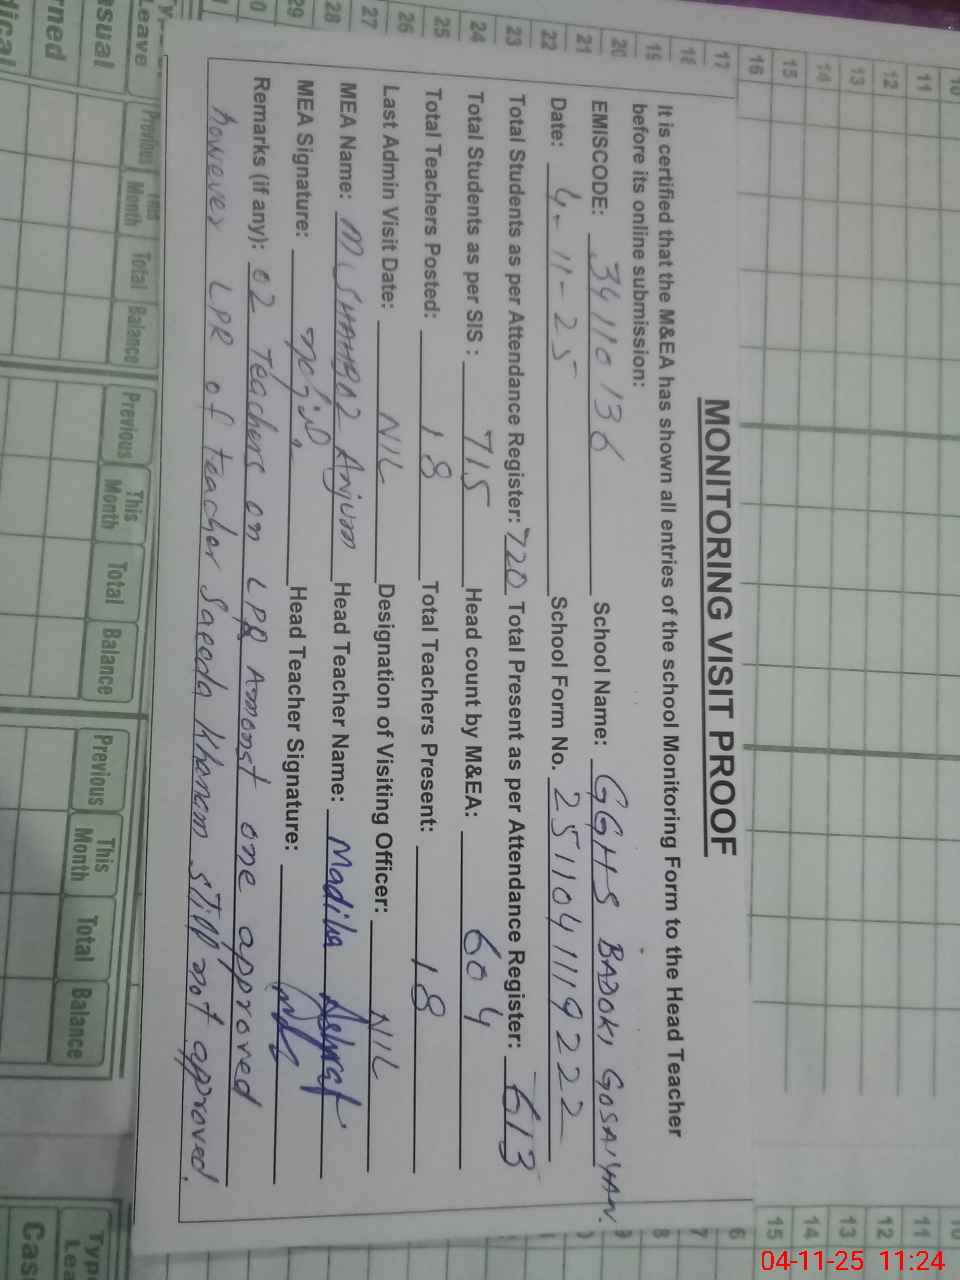 MONITORING VISIT PROOF
It is certified that the M&EA has shown all entries of the school Monitoring Form to the Head Teacher
before its online submission:
EMISCODE: 34110136 School Name: GGHS BADOKI GOSAIYAN.
Date: 4-11-25 School Form No. 25110411119222
Total Students as per Attendance Register: 720 Total Present as per Attendance Register: 613
Total Students as per SIS : 715 Head count by M&EA: 604
Total Teachers Posted: 18 Total Teachers Present: 18
Last Admin Visit Date: NIL Designation of Visiting Officer: NIL
MEA Name: M. SHAHBAZ Anjum Head Teacher Name: Madiha Ashraf
MEA Signature: Head Teacher Signature:
Remarks (if any): 02 Teachers on LPR Amonst one approved
however LPR of teacher Saeeda Khanam still not approved.
Previous This Month Total Balance
Previous This Month Total Balance
Previous This Month Total Balance
04-11-25 11:24